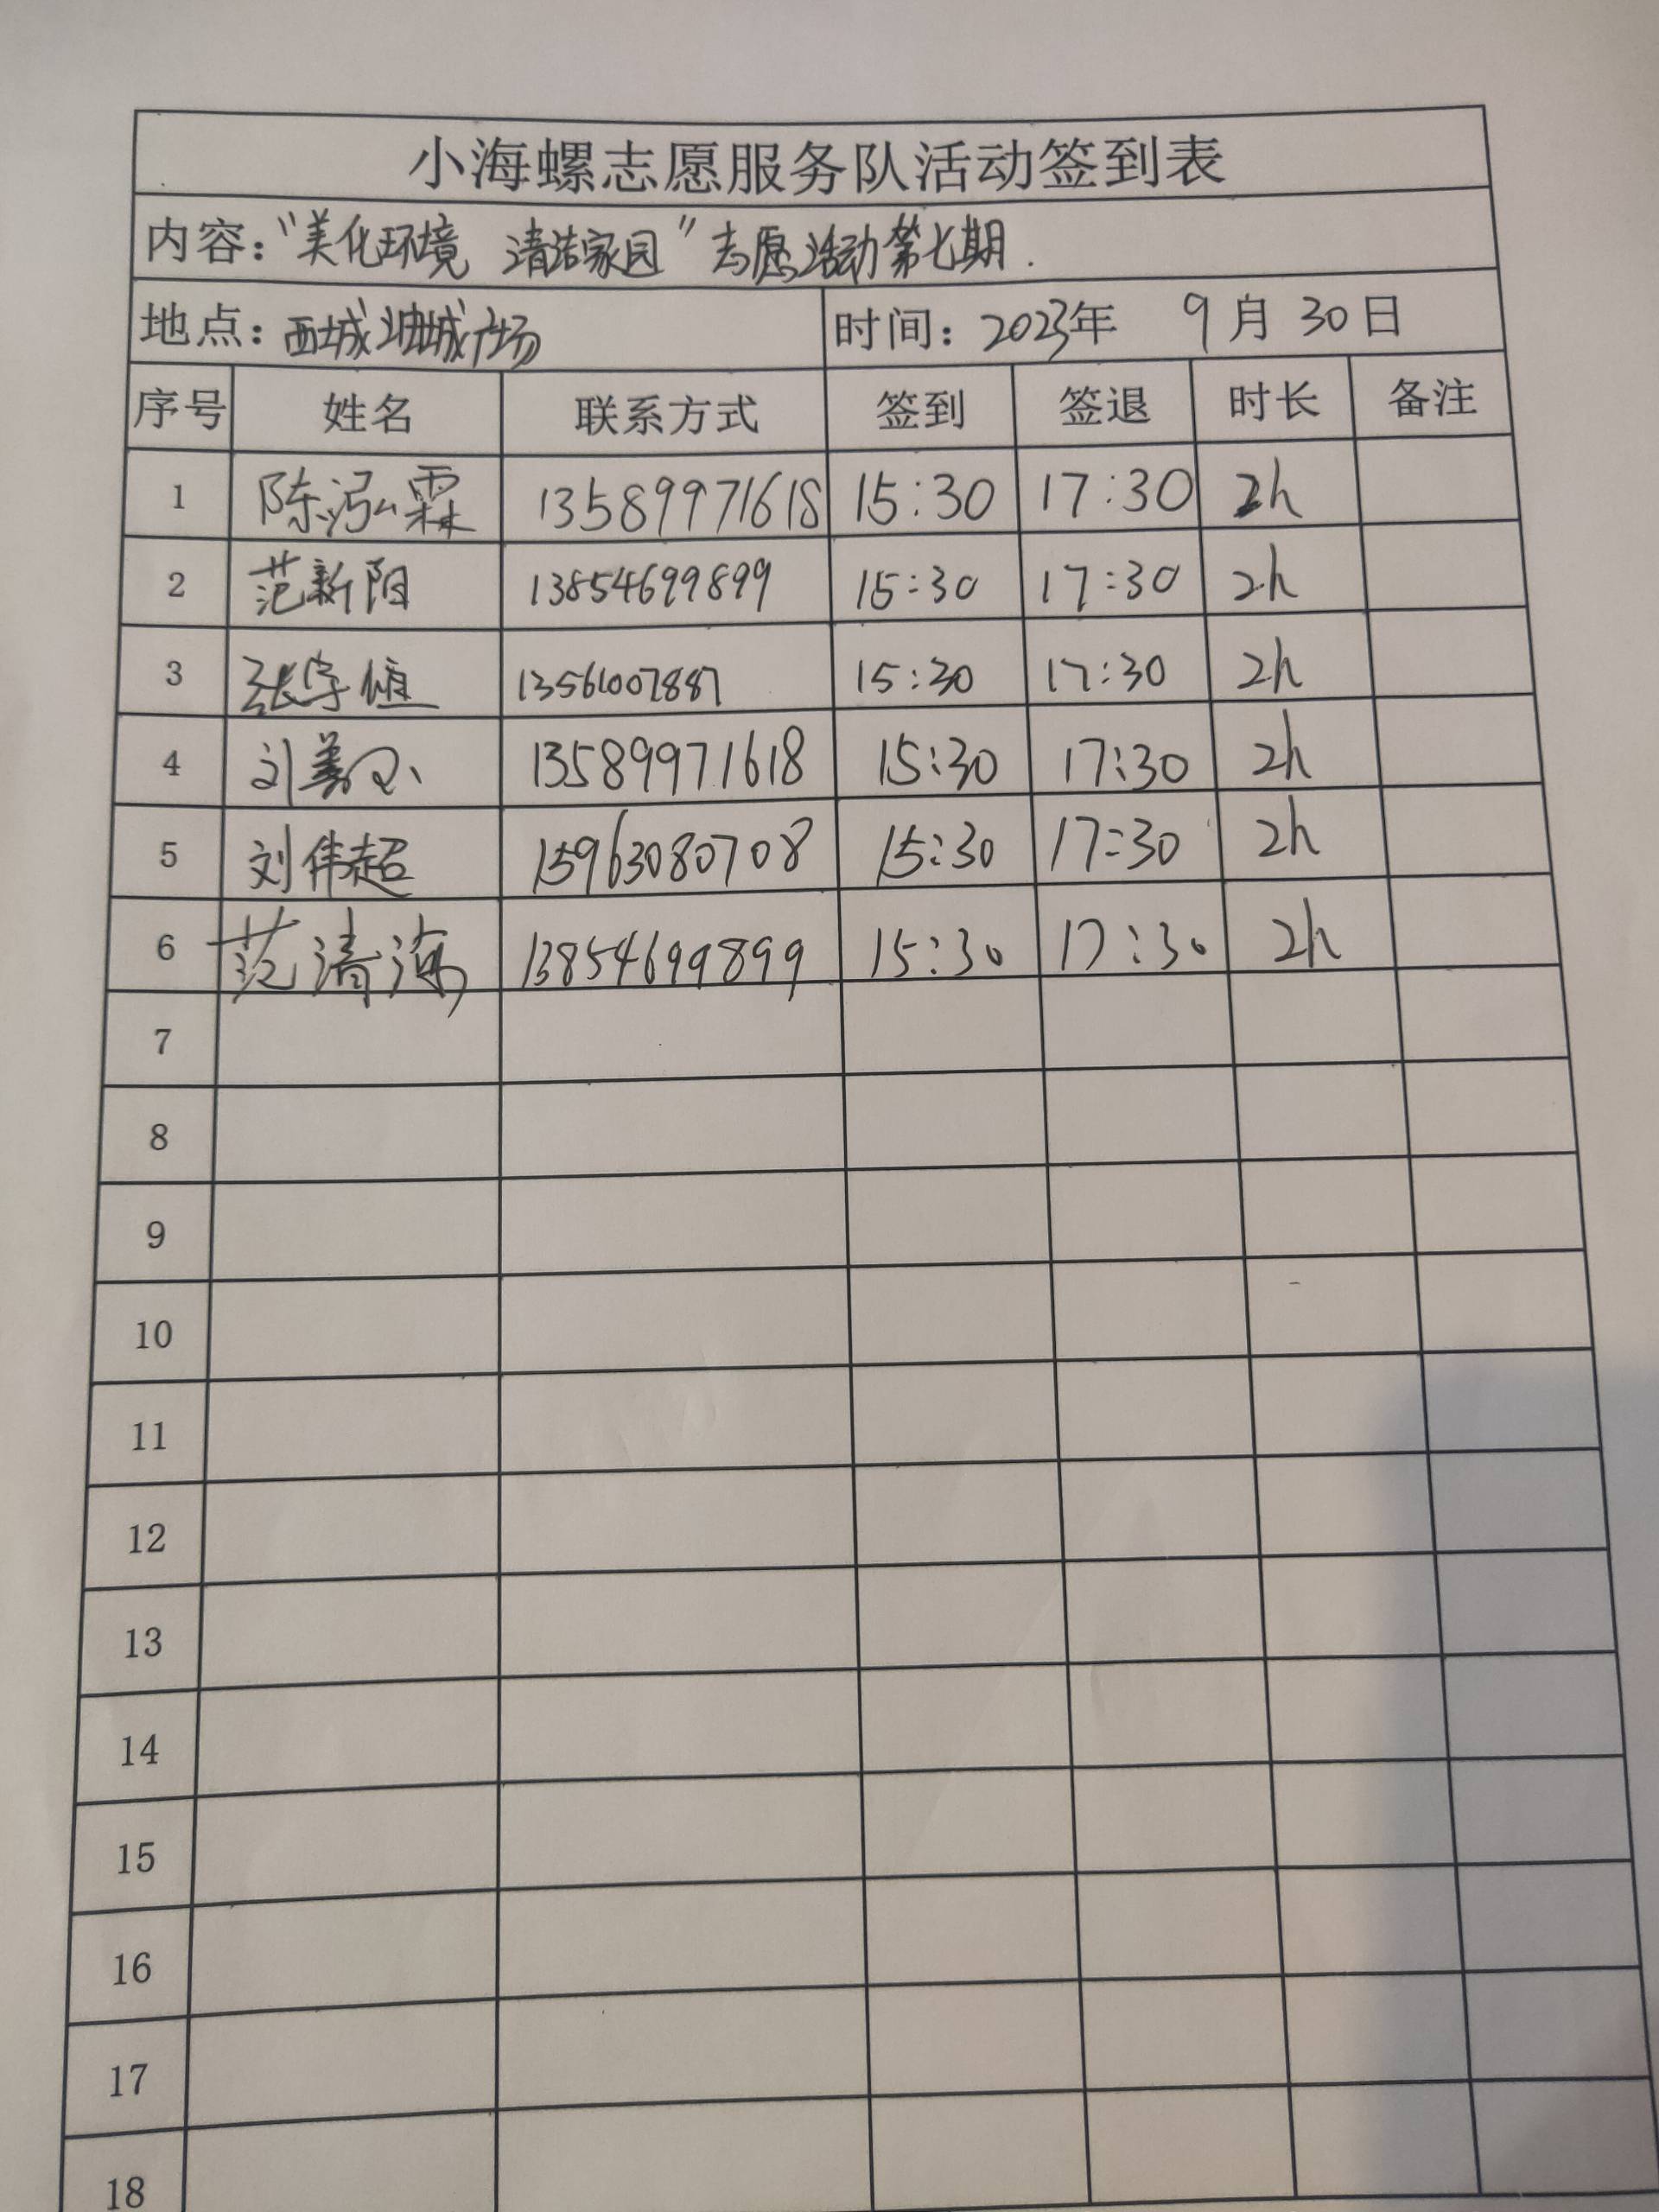 小海螺志愿服务队活动签到表
内容：“美化环境 清洁家园”志愿活动第七期.
地点：西城油城广场 时间：2023年 9月30日
序号 姓名 联系方式 签到 签退 时长 备注
1 陈泓霖 13589971618 15:30 17:30 2h
2 范新阳 13854699899 15:30 17:30 2h
3 张宇恒 13561007887 15:30 17:30 2h
4 刘美 13589971618 15:30 17:30 2h
5 刘伟超 15963080708 15:30 17:30 2h
6 范清海 13854699899 15:30 17:30 2h
7
8
9
10
11
12
13
14
15
16
17
18